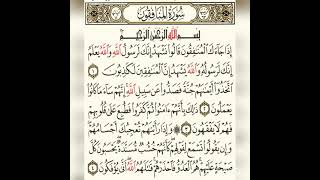 سُورَةُ الْمُنَافِقُونَ
بِسْمِ اللَّهِ الرَّحْمَٰنِ الرَّحِيمِ
إِذَا جَاءَكَ الْمُنَافِقُونَ قَالُوا نَشْهَدُ إِنَّكَ لَرَسُولُ اللَّهِ وَاللَّهُ يَعْلَمُ
إِنَّكَ لَرَسُولُهُ وَاللَّهُ يَشْهَدُ إِنَّ الْمُنَافِقِينَ لَكَاذِبُونَ ١
اتَّخَذُوا أَيْمَانَهُمْ جُنَّةً فَصَدُّوا عَنْ سَبِيلِ اللَّهِ إِنَّهُمْ سَاءَ مَا كَانُوا
يَعْمَلُونَ ٢ ذَٰلِكَ بِأَنَّهُمْ آمَنُوا ثُمَّ كَفَرُوا فَطُبِعَ عَلَىٰ قُلُوبِهِمْ
فَهُمْ لَا يَفْقَهُونَ ٣ وَإِذَا رَأَيْتَهُمْ تُعْجِبُكَ أَجْسَامُهُمْ
وَإِنْ يَقُولُوا تَسْمَعْ لِقَوْلِهِمْ كَأَنَّهُمْ خُشُبٌ مُسَنَّدَةٌ يَحْسَبُونَ كُلَّ
صَيْحَةٍ عَلَيْهِمْ هُمُ الْعَدُوُّ فَاحْذَرْهُمْ قَاتَلَهُمُ اللَّهُ أَنَّىٰ يُؤْفَكُونَ ٤